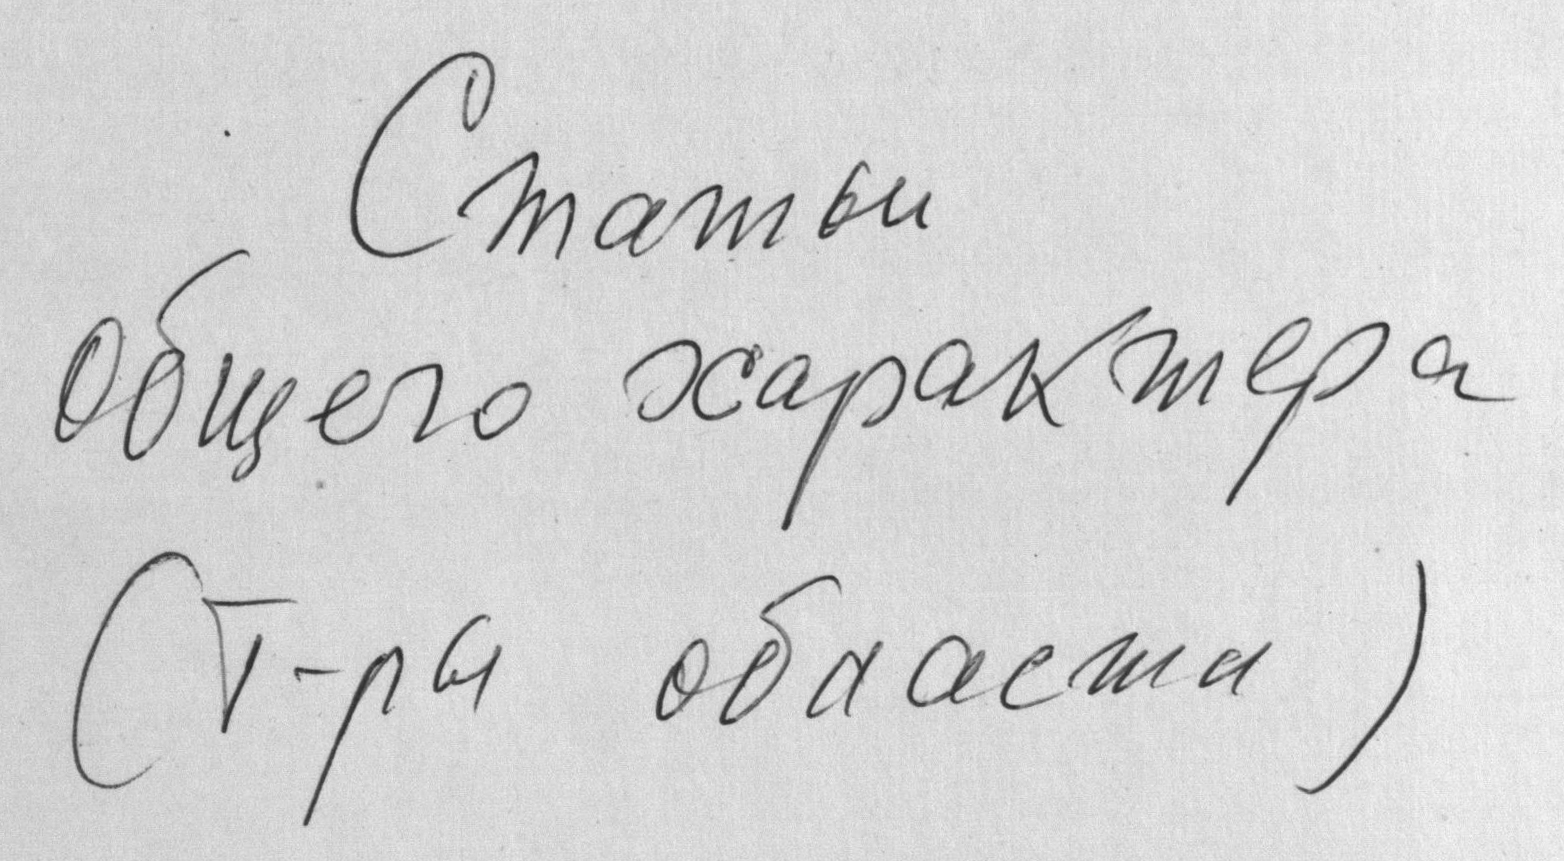 Статьи
общего характера
(Т-ры области)